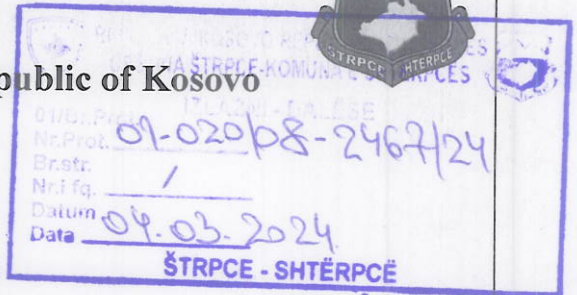 ŠTRPCE SHTERPCE
public of Kosovo
IZLAZNI - DALËSE
01/Br.Prot.
Nr.Prot. 01-020/08-2467/24
Br.str.
Nr.i fq. /
Datum
Data 04.03.2024
ŠTRPCE - SHTËRPCË